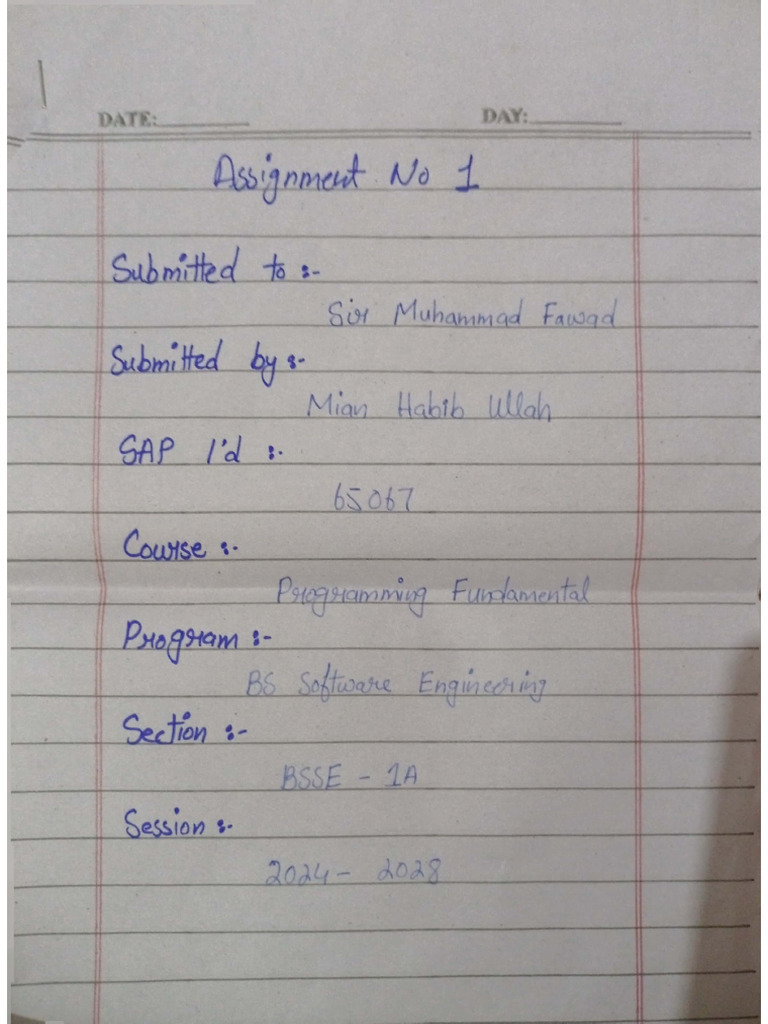 DATE: DAY:
Assignment No 1
Submitted to :-
Sir Muhammad Fawad
Submitted by :-
Mian Habib Ullah
SAP I'd :-
65067
Course :-
Programming Fundamental
Program :-
BS Software Engineering
Section :-
BSSE - 1A
Session :-
2024 - 2028